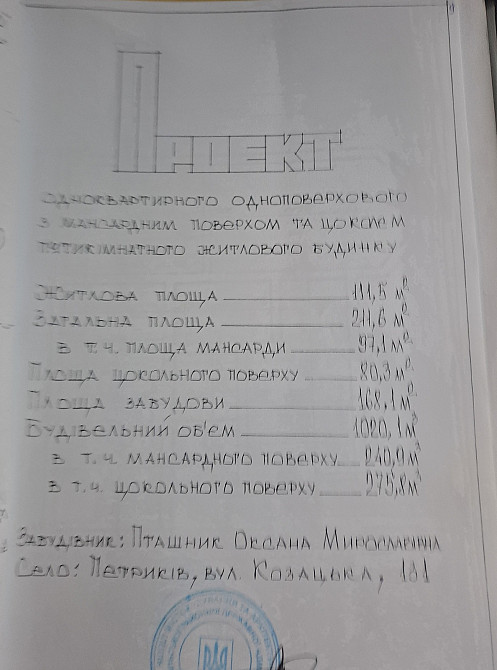 ПРОЕКТ
ОДНОКВАРТИРНОГО ОДНОПОВЕРХОВОГО
З МАНСАРДНИМ ПОВЕРХОМ ТА ЦОКОЛЕМ
ПЯТИКІМНАТНОГО ЖИТЛОВОГО БУДИНКУ
ЖИТЛОВА ПЛОЩА 111,5 м²
ЗАГАЛЬНА ПЛОЩА 211,6 м²
В Т.Ч. ПЛОЩА МАНСАРДИ 97,1 м²
ПЛОЩА ЦОКОЛЬНОГО ПОВЕРХУ 80,3 м²
ПЛОЩА ЗАБУДОВИ 168,1 м²
БУДІВЕЛЬНИЙ ОБ'ЄМ 1020,1 м³
В Т.Ч. МАНСАРДНОГО ПОВЕРХУ 240,0 м³
В Т.Ч. ЦОКОЛЬНОГО ПОВЕРХУ 275,8 м³
ЗАБУДІВНИК: ПТАШНИК ОКСАНА МИРОСЛАВІВНА
СЕЛО: ПЕТРИКІВ, ВУЛ. КОЗАЦЬКА, 181